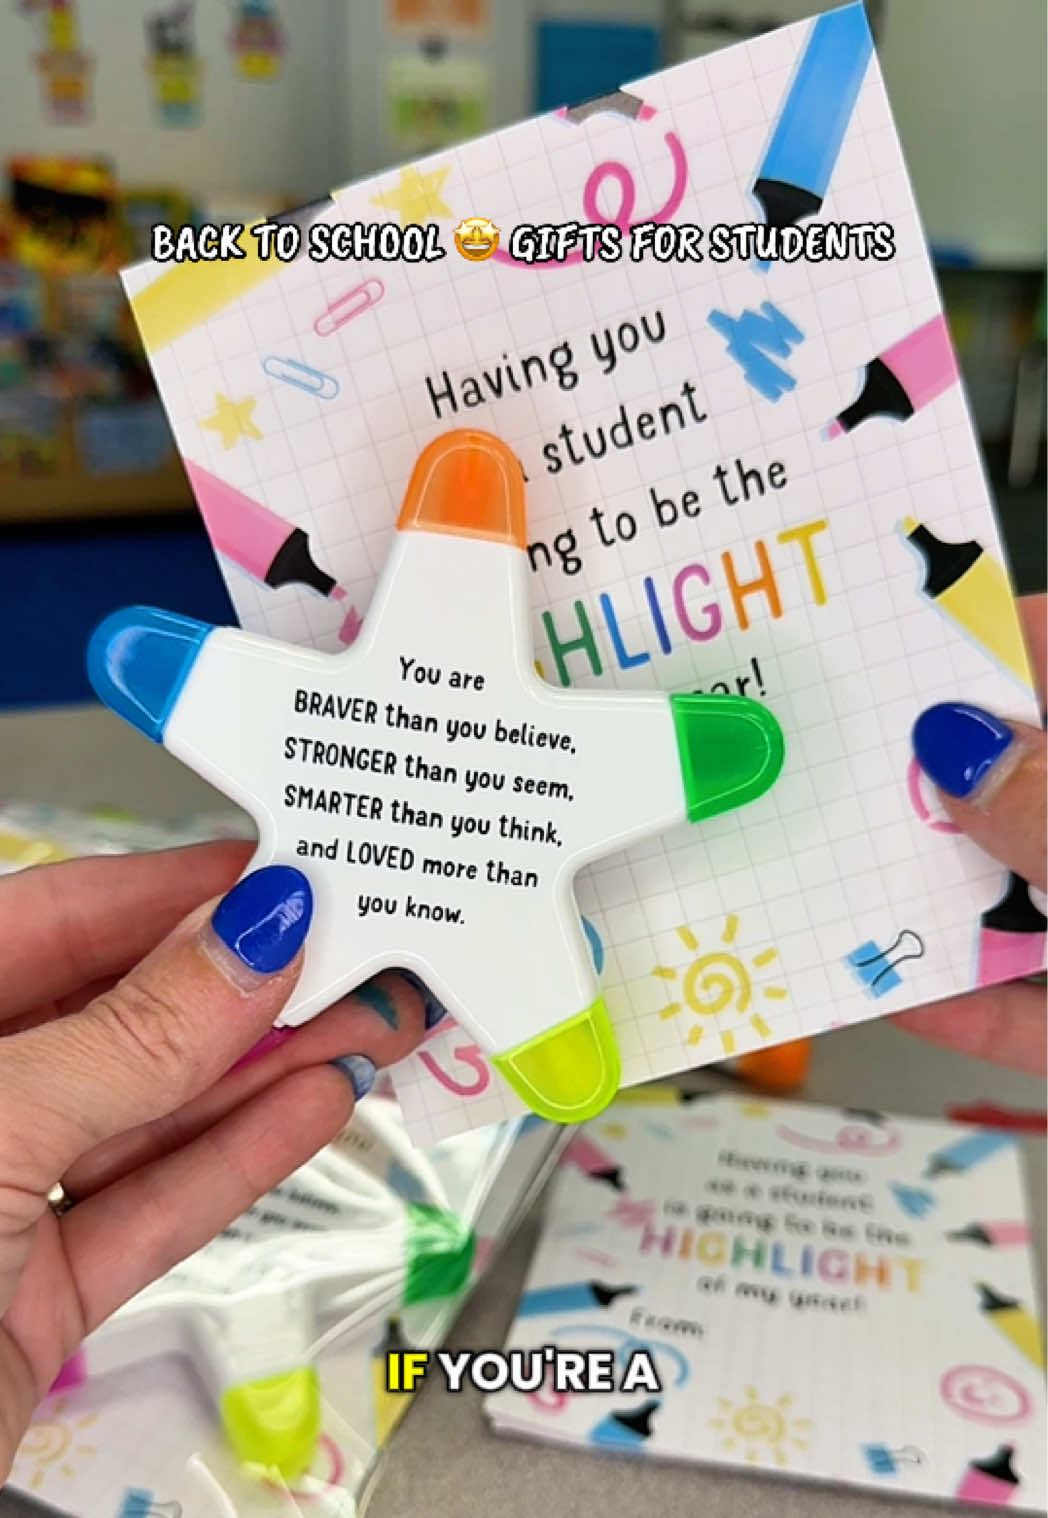 BACK TO SCHOOL 🤩 GIFTS FOR STUDENTS
Having you
student
ng to be the
HLIGHT
ar!
You are
BRAVER than you believe,
STRONGER than you seem,
SMARTER than you think,
and LOVED more than
you know.
Having you
as a student
is going to be the
HIGHLIGHT
of my year!
From:
IF YOU'RE A